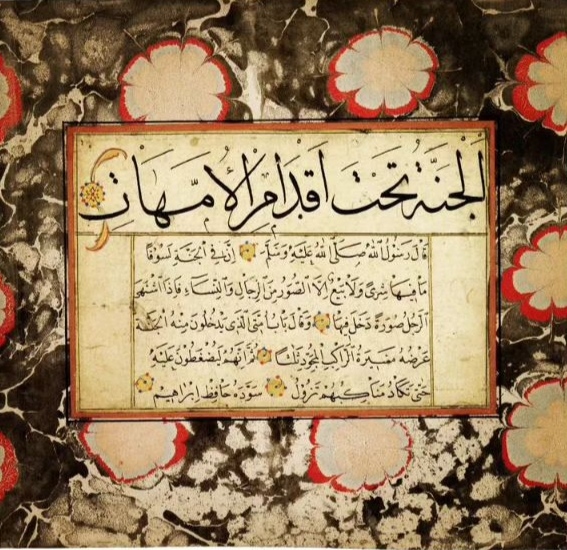 الجنة تحت اقدام الامهات
قال رسول الله صلى الله عليه وسلم ان في الجنة لسوقا
ما فيها شرى ولا بيع الا الصور من الرجال والنساء فاذا اشتهى
الرجل صورة دخل فيها وقال باب امتى الذى يدخلون منه الجنة
عرضه مسيرة الراكب المجود ثلثا ثم انهم ليضغطون عليه
حتى تكاد مناكبهم تزول سوده حافظ ابراهيم